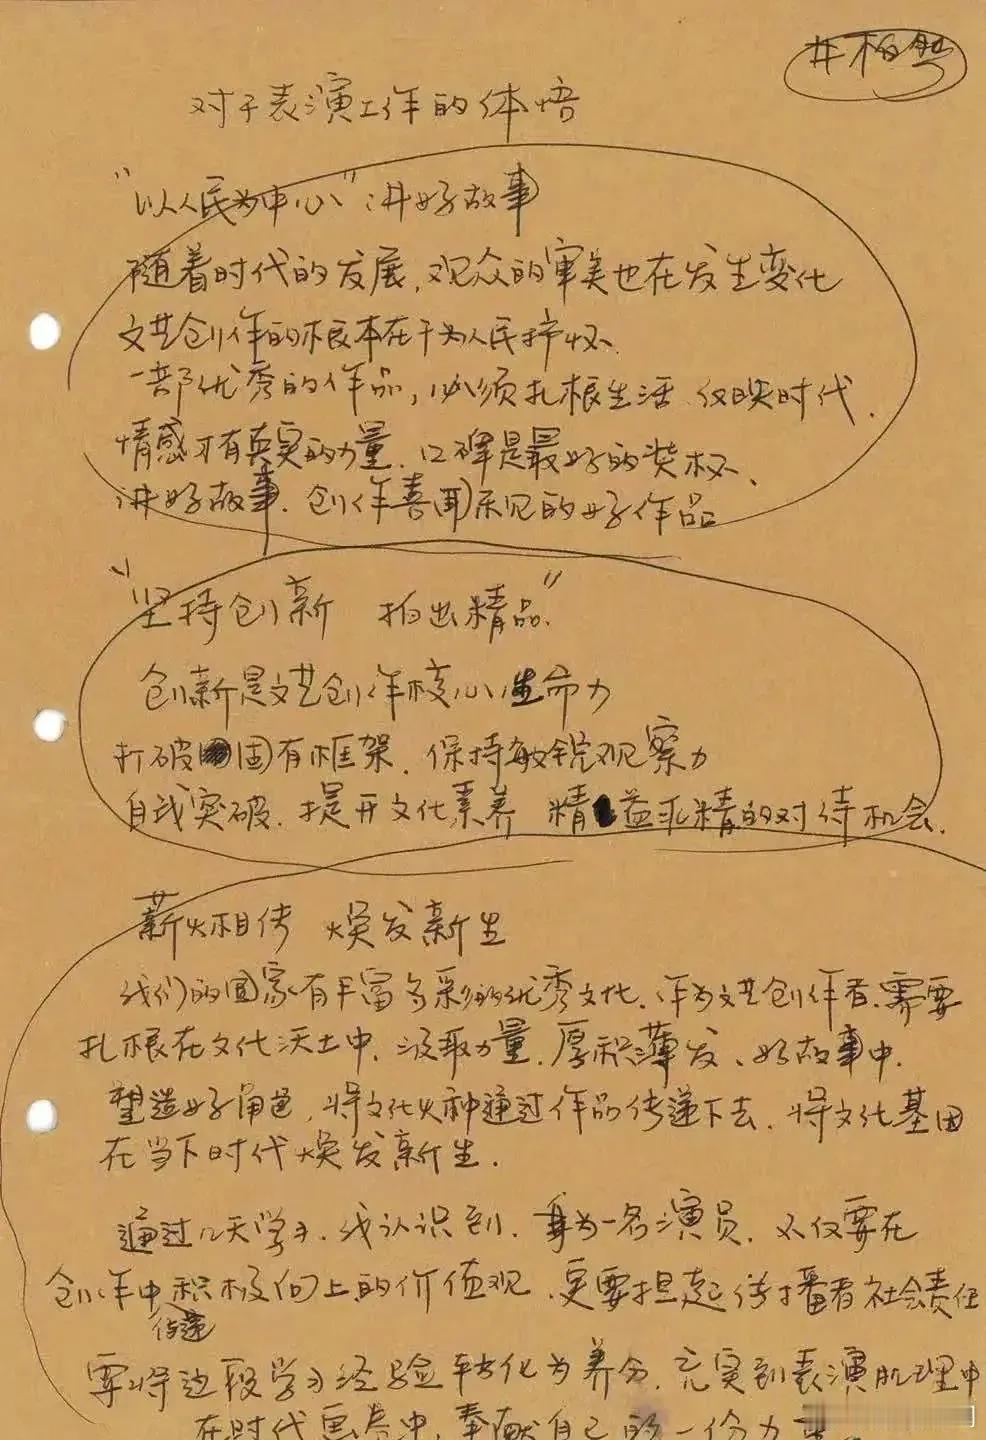 井柏然
对于表演工作的体悟
"以人民为中心"讲好故事
随着时代的发展,观众的审美也在发生变化
文艺创作的根本在于为人民抒怀、
一部优秀的作品,必须扎根生活、反映时代、
情感才有真实的力量、口碑是最好的奖杯、
讲好故事、创作喜闻乐见的好作品
"坚持创新 拍出精品"
创新是文艺创作核心生命力
打破固有框架、保持敏锐观察力
自我突破、提升文化素养 精益求精的对待机会、
薪火相传 焕发新生
我们的国家有丰富多彩的优秀文化、作为文艺创作者、需要
扎根在文化沃土中、汲取力量、厚积薄发、好故事中、
塑造好角色,将文化火种通过作品传递下去、将文化基因
在当下时代焕发新生、
通过几天学习、我认识到、身为一名演员、不仅要在
创作中传递积极向上的价值观、更要担起传播者社会责任
要将这段学习经验转化为养分、充实到表演肌理中
在时代画卷中、奉献自己的一份力量。